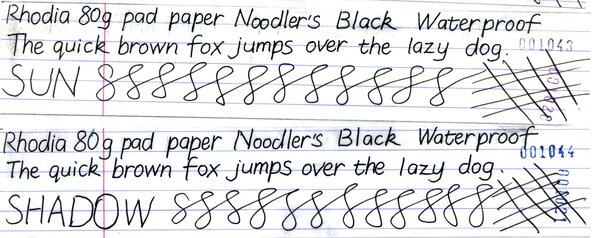 Rhodia 80g pad paper Noodler's Black Waterproof
The quick brown fox jumps over the lazy dog. 001043
SUN
Rhodia 80g pad paper Noodler's Black Waterproof
001044
The quick brown fox jumps over the lazy dog.
SHADOW